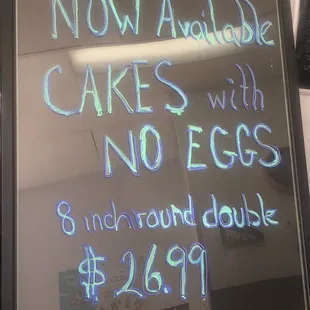 NOW Available
CAKES with
NO EGGS
8 inch round double
$26.99